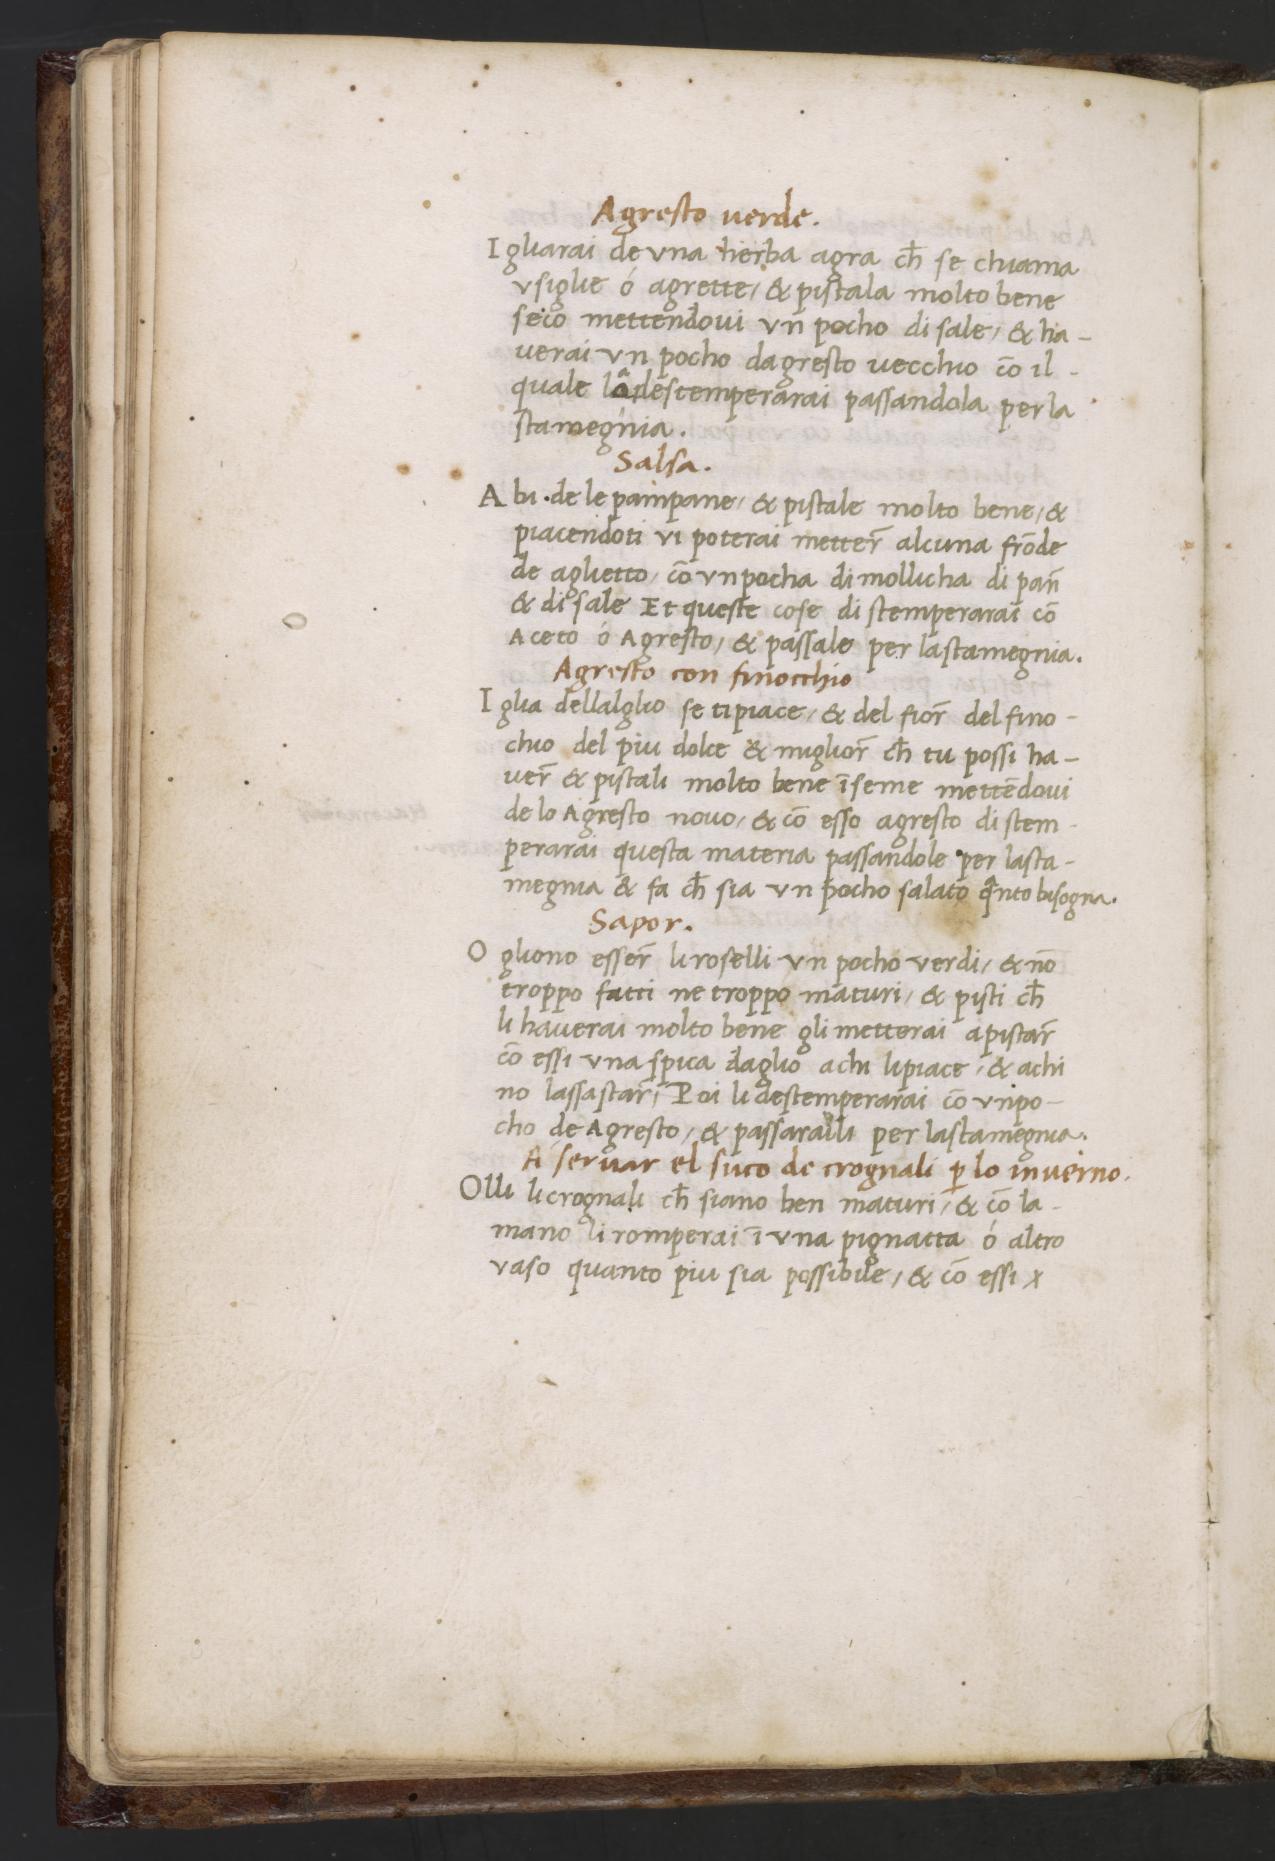 Agresto verde.
Igliarai de vna herba agra ch̄ se chiama
vsiglie ó agrette, & pistala molto bene
seco mettendoui vn pocho di sale, & ha-
uerai vn pocho dagresto vecchio cō il
quale la destemperarai passandola per la
stamegnia.
Salsa.
Abi de le pampane, & pistale molto bene, &
piacendoti vi poterai metter̄ alcuna frōde
de aglietto, cō vn pocha di mollicha di pan̄
& di sale Et queste cose distemperarai cō
Aceto ó Agresto, & passale per la stamegnia.
Agresto con finocchio
Iglia dellalglio se ti piace, & del fior̄ del fino-
chio del piu dolce & miglior̄ ch̄ tu possi ha-
uer̄ & pistali molto bene īseme mettēdoui
de lo Agresto novo, & cō esso agresto distem-
perarai questa materia passandole per lasta-
megnia & fa ch̄ sia vn pocho salato q̄nto bisogna.
Sapor.
Ogliono esser̄ li roselli vn pocho verdi, & nō
troppo fatti ne troppo maturi, & pisti ch̄
li haverai molto bene gli metterai a pistar̄
cō essi vna spica daglio a chi li piace, & achi
no lassa star̄, Poi li destemperarai cō vn po-
cho de Agresto, & passaraili per la stamegnia.
A servar el suco de crognali ꝑ lo inverno.
Olli li crognali ch̄ siano ben maturi, & cō la
mano li romperai ī vna pignatta ó altro
vaso quanto piu sia possibile, & cō essi x